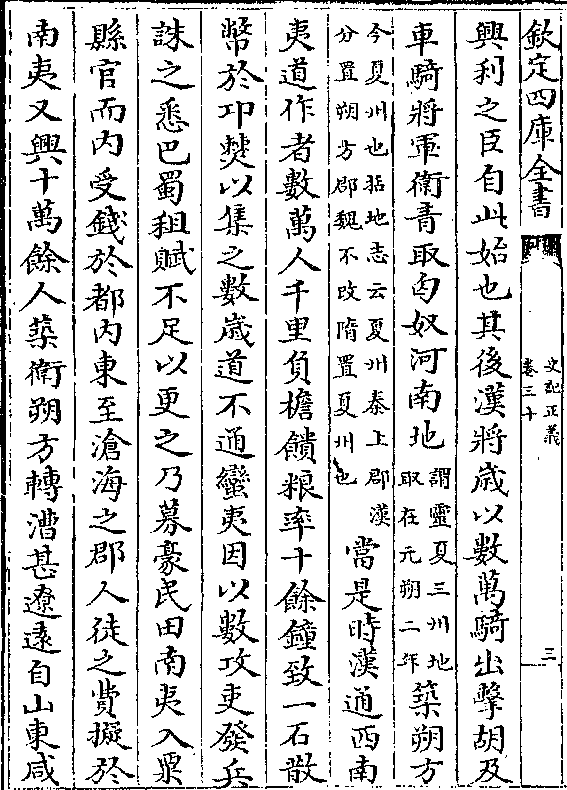 欽定四庫全書
史記正義
卷三十
三
興利之臣自此始也其後漢將歲以數萬騎出擊胡及
車騎將軍衛青取匈奴河南地謂靈夏三州地
取在元朔二年築朔方
今夏州也括地志云夏州秦上郡漢
分置朔方郡魏不改隋置夏州也當是時漢通西南
夷道作者數萬人千里負檐饋粮率十餘鐘致一石散
幣於卭僰以集之數歲道不通蠻夷因以數攻吏發兵
誅之悉巴蜀租賦不足以更之乃募豪民田南夷入粟
縣官而內受錢於都內東至滄海之郡人徒之費擬於
南夷又興十萬餘人築衛朔方轉漕甚遼遠自山東咸